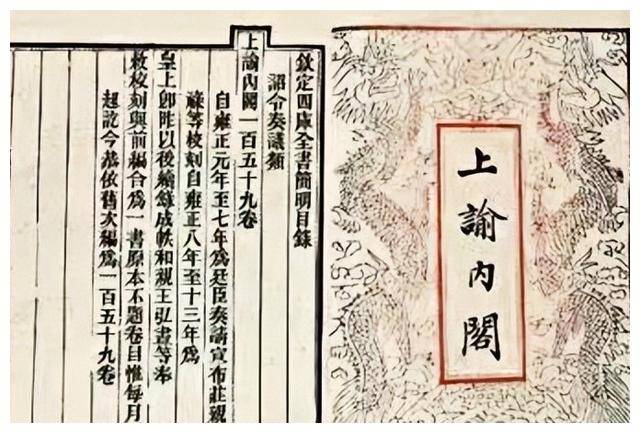 上諭内閣
欽定四庫全書簡明目錄
詔令奏議類
上諭內閣一百五十九卷
自雍正元年至七年爲廷臣奏請宣布莊親
祿等校刻自雍正八年至十三年爲
皇上卽阼以後續錄成帙和親王弘晝等奉
敕校刻與前編合爲一書原本不題卷目惟每月
起訖今恭依舊次編爲一百五十九卷